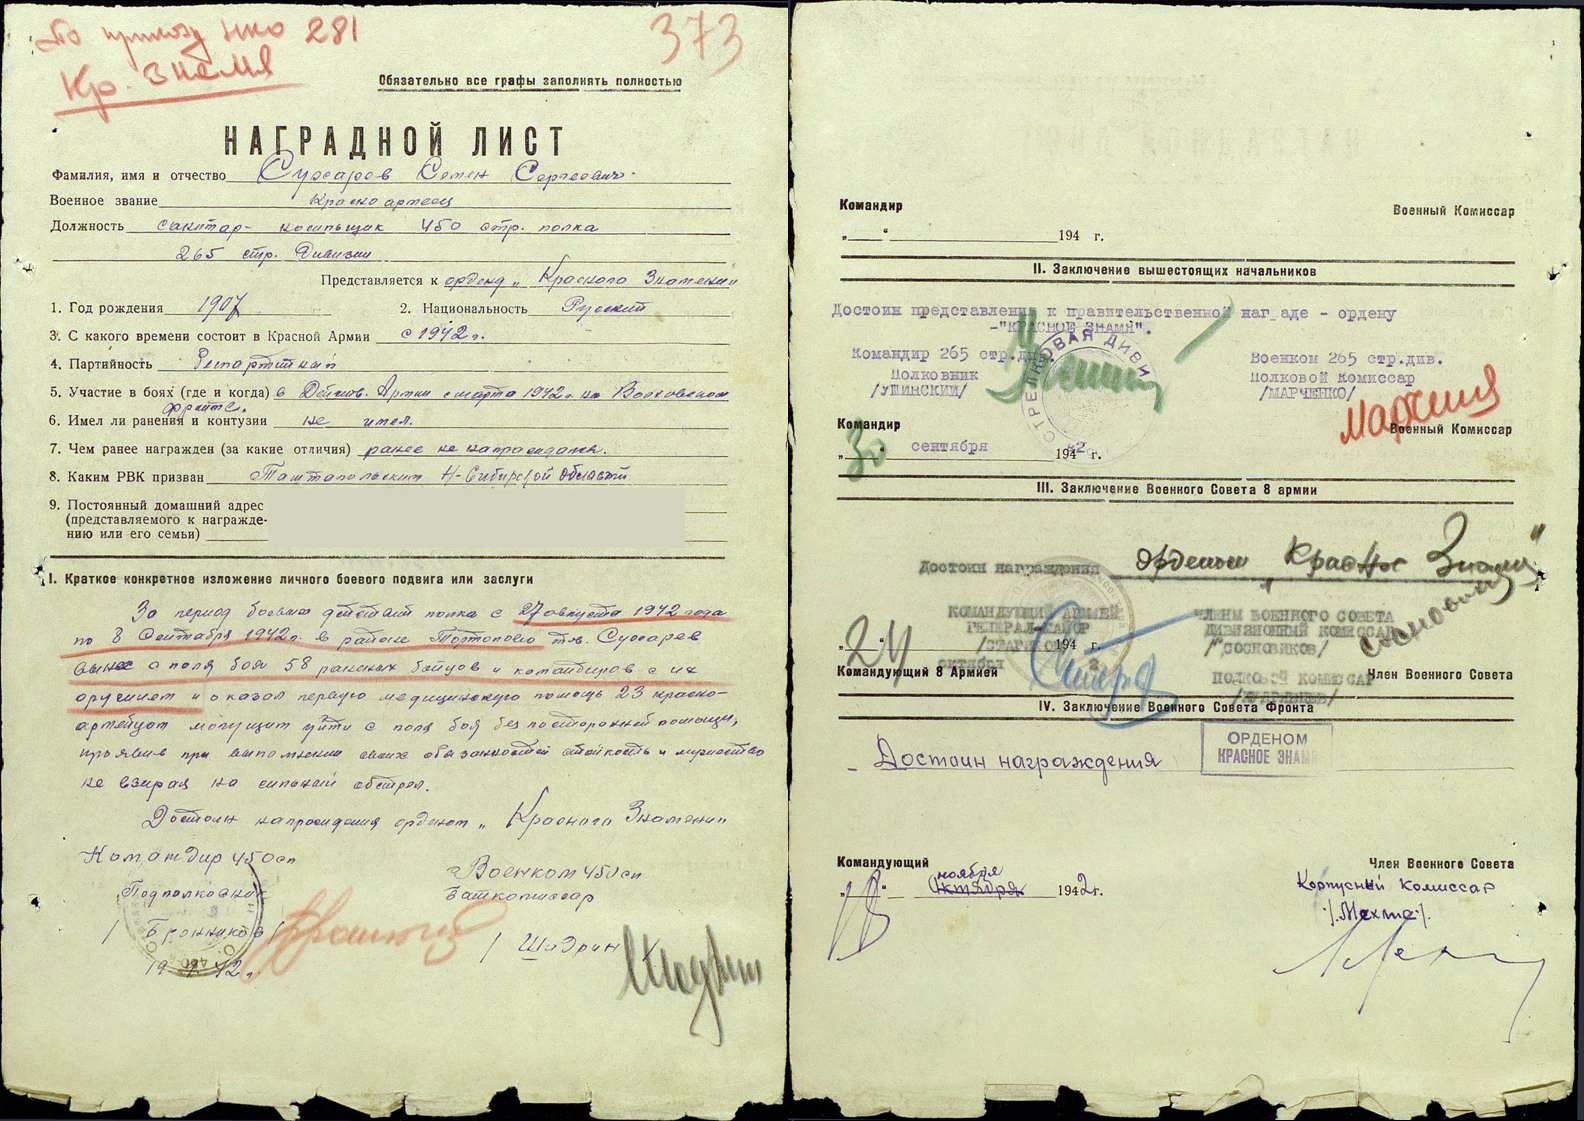 По приказу НКО 281
Кр. Знамя
373
Обязательно все графы заполнять полностью
НАГРАДНОЙ ЛИСТ
Фамилия, имя и отчество Сухарев Семен Сергеевич.
Военное звание Красноармеец
Должность санитар- носильщик 450 стр. полка
265 стр. Дивизии
Представляется к ордену „Красного Знамени"
1. Год рождения 1907 2. Национальность Русский
3. С какого времени состоит в Красной Армии с 1942 г.
4. Партийность Беспартийный
5. Участие в боях (где и когда) в Действ. Армии с марта 1942 г. на Волховском
фронте.
6. Имел ли ранения и контузии не имел.
7. Чем ранее награжден (за какие отличия) ранее не награждался.
8. Каким РВК призван Таштагольским Н-Сибирской области
9. Постоянный домашний адрес
(представляемого к награжде-
нию или его семьи)
I. Краткое конкретное изложение личного боевого подвига или заслуги
За период боевых действий полка с 27 августа 1942 года
по 8 Сентября 1942 г. в районе тов. Сухарев
вынес с поля боя 58 раненых бойцов и командиров с их
оружием и оказал первую медицинскую помощь 23 красно-
армейцам могущим уйти с поля боя без посторонней помощи,
проявив при выполнении своих обязанностей стойкость и мужество
не взирая на сильный обстрел.
Достоин награждения орденом „Красного Знамени"
Командир 450 сп
Подполковник
/Бронников/
Военком 450 сп
Баткомиссар
/Шидрин
Командир Военный Комиссар
„ “ 194 г.
II. Заключение вышестоящих начальников
Достоин представления к правительственной наг_аде - ордену
-"КРАСНОЕ ЗНАМЯ".
СТРЕЛКОВАЯ ДИВИ
Командир 265 стр.див. Военком 265 стр.див.
Полковник Полковой Комиссар
/УШИНСКИЙ/ /МАРЧЕНКО/
Командир Военный Комиссар
„30“ сентября 1942 г.
III. Заключение Военного Совета 8 армии
Достоин награждения орденом „Красное Знамя"
КОМАНДУЮЩИЙ АРМИЕЙ ЧЛЕНЫ ВОЕННОГО СОВЕТА
ГЕНЕРАЛ-МАЙОР ДИВИЗИОННЫЙ КОМИССАР
„24“ /СТАРИКОВ/ 194 г. /СОСНОВИКОВ/
октября ПОЛКОВОЙ КОМИССАР
Командующий 8 Армией Член Военного Совета
IV. Заключение Военного Совета Фронта
Достоин награждения
ОРДЕНОМ
КРАСНОЕ ЗНАМЯ
Командующий Член Военного Совета
ноября
„ “ октября 1942 г.
Корпусный Комиссар
/Мехлис/.